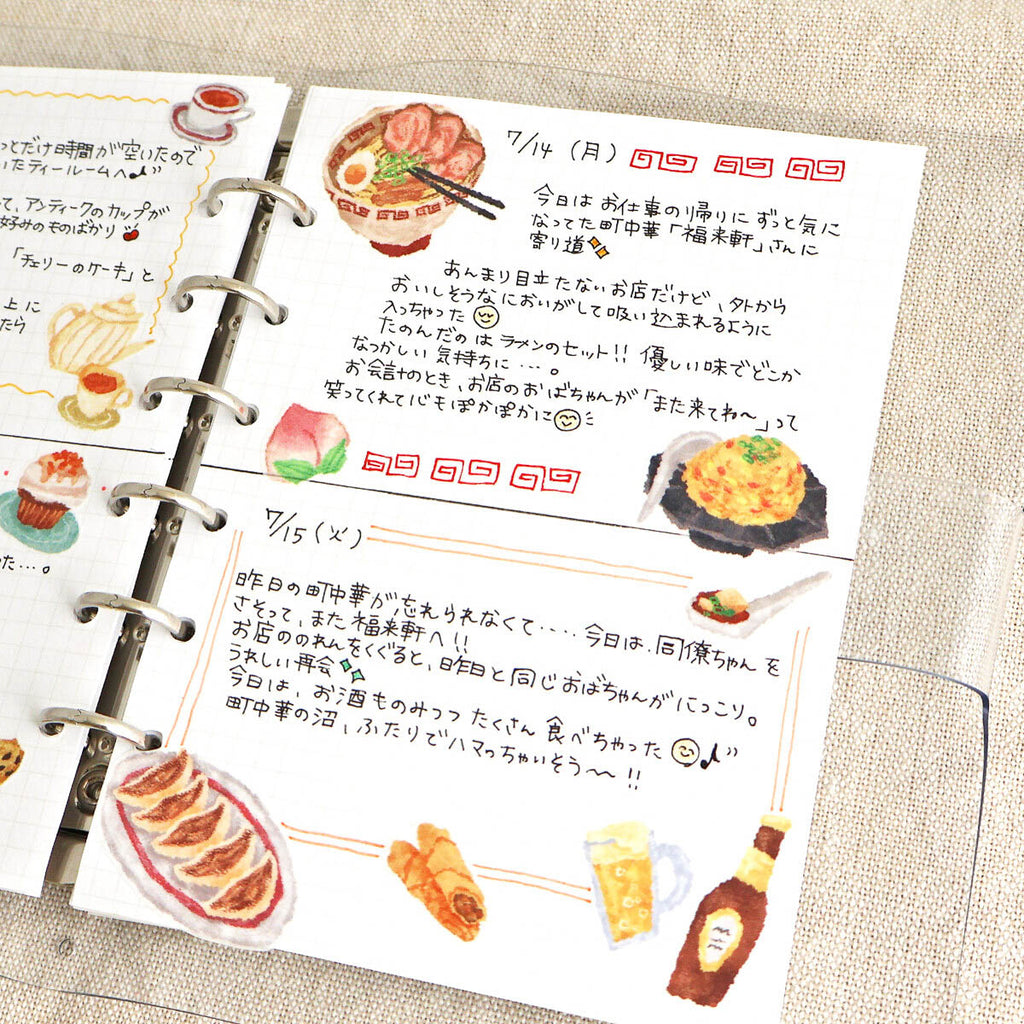 っとだけ時間が空いたので
いたティールームへ♪
って、アンティークのカップが
好みのものばかり
「チェリーのケーキ」と
上に
たら
った…。
7/14（月）
今日はお仕事の帰りにずっと気に
なってた町中華「福来軒」さんに
寄り道
あんまり目立たないお店だけど、外から
おいしそうなにおいがして吸い込まれるように
入っちゃった
たのんだのはラーメンのセット!! 優しい味でどこか
なつかしい気持ちに…。
お会計のとき、お店のおばちゃんが「また来てね〜」って
笑ってくれて心もぽかぽかに
7/15（火）
昨日の町中華が忘れられなくて‥‥今日は、同僚ちゃんを
さそって、また福来軒へ!!
お店ののれんをくぐると、昨日と同じおばちゃんがにっこり。
うれしい再会
今日は、お酒ものみつつたくさん食べちゃった♪
町中華の沼、ふたりでハマっちゃいそう〜!!